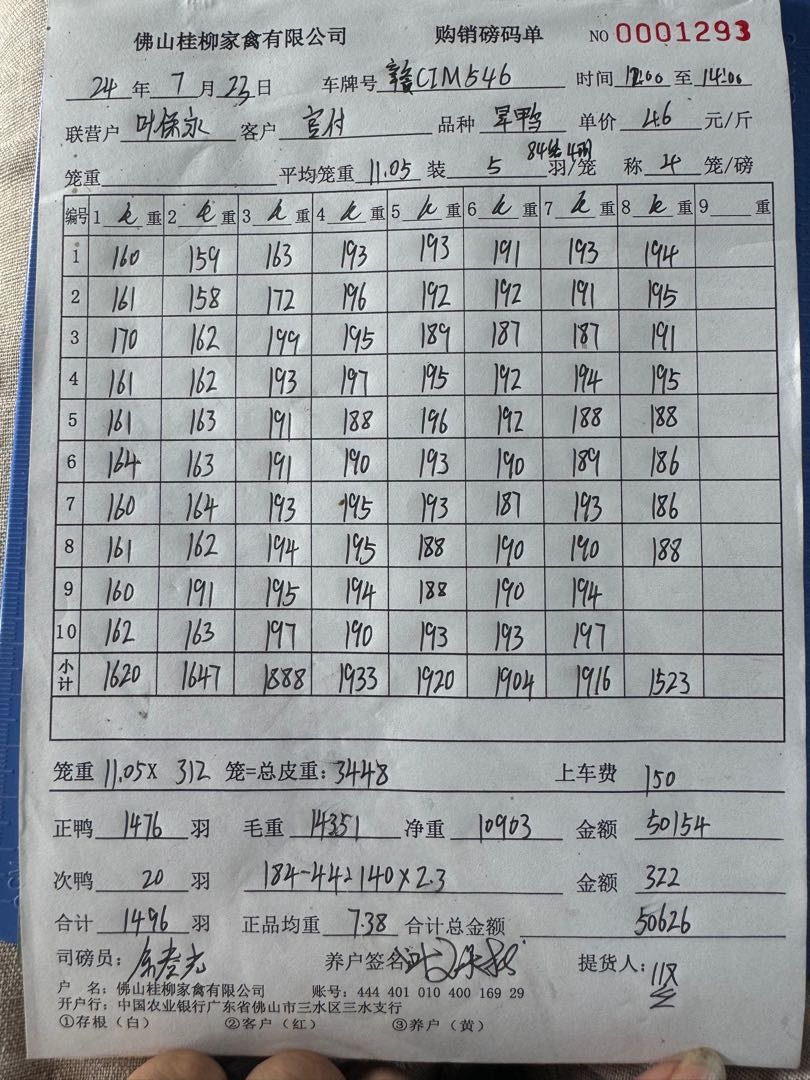 佛山桂柳家禽有限公司 购销磅码单 NO 0001293
24 年 7 月 23 日 车牌号 赣CIM546 时间 12:00 至 14:00
联营户 叶保永 客户 官付 品种 旱鸭 单价 4.6 元/斤
84结4羽
笼重 平均笼重 11.05 装 5 羽/笼 称 4 笼/磅
编号 1 重 2 重 3 重 4 重 5 重 6 重 7 重 8 重 9 重
1 160 159 163 193 193 191 193 194
2 161 158 172 196 192 192 191 195
3 170 162 199 195 189 187 187 191
4 161 162 193 197 195 192 194 195
5 161 163 191 188 196 192 188 188
6 164 163 191 190 193 190 189 186
7 160 164 193 195 193 187 193 186
8 161 162 194 195 188 190 190 188
9 160 191 195 194 188 190 194
10 162 163 197 190 193 193 197
小计 1620 1647 1888 1933 1920 1904 1916 1523
笼重 11.05X 312 笼=总皮重:3448 上车费 150
正鸭 1476 羽 毛重 14351 净重 10903 金额 50154
次鸭 20 羽 184-44=140X2.3 金额 322
合计 1496 羽 正品均重 7.38 合计总金额 50626
司磅员: 养户签名 提货人:
户 名:佛山桂柳家禽有限公司 账号:444 401 010 400 169 29
开户行:中国农业银行广东省佛山市三水区三水支行
①存根(白) ②客户(红) ③养户(黄)